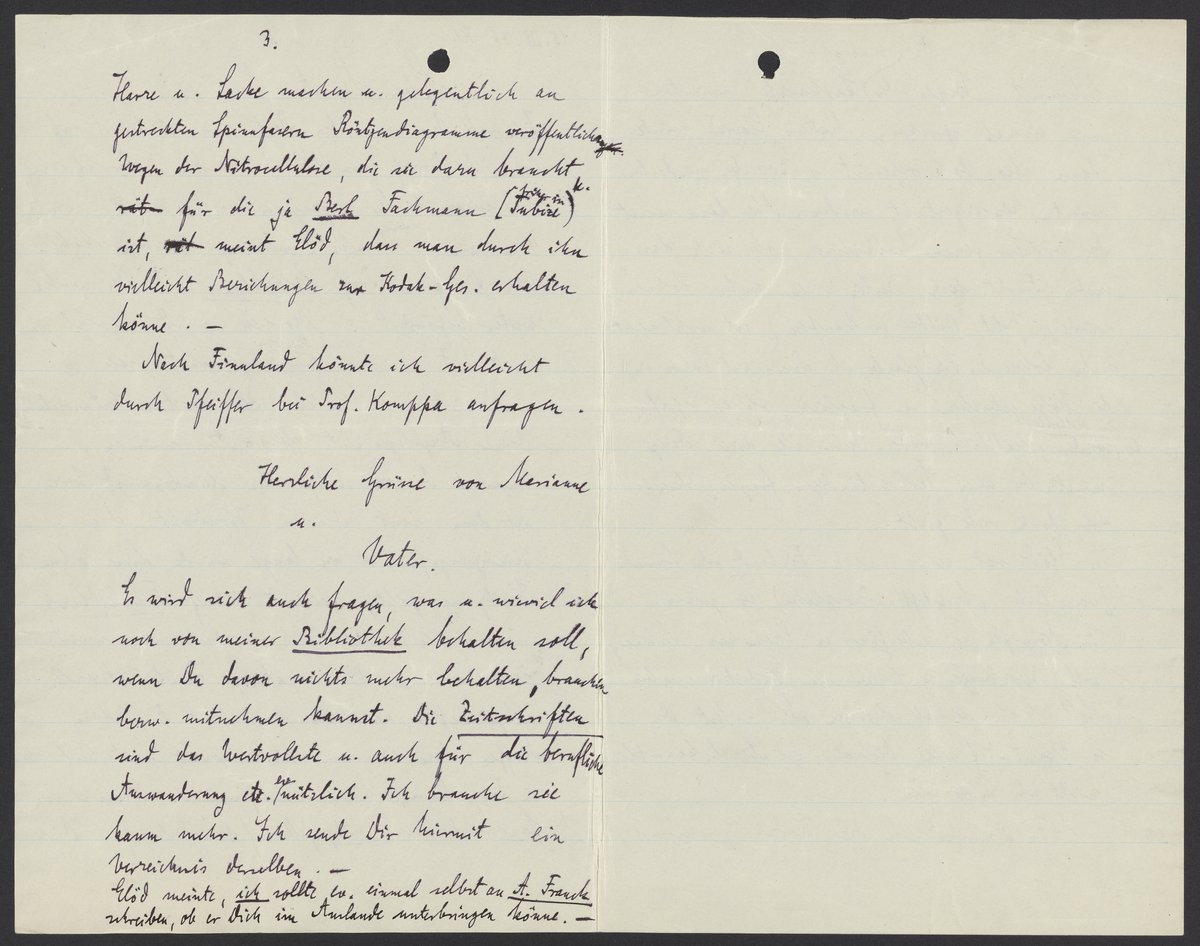 3.
Harze u. Lacke machen u. gelegentlich an
gestreckten Spinnfasern Röntgendiagramme veröffentlichen.
Wegen der Nitrocellulose, die sie dazu braucht
für die ja Berl Fachmann (früher in Tubize) u.
ist, meint Elöd, dass man durch ihn
vielleicht Beziehungen zur Kodak-Ges. erhalten
könne. —
Nach Finnland könnte ich vielleicht
durch Pfeiffer bei Prof. Komppa anfragen.
Herzliche Grüsse von Marianne
u.
Vater.
Es wird sich auch fragen, was u. wieviel ich
noch von meiner Bibliothek behalten soll,
wenn Du davon nichts mehr behalten, brauchen
bezw. mitnehmen kannst. Die Zeitschriften
sind das Wertvollste u. auch für die berufliche
Auswanderung etc. ev. nützlich. Ich brauche sie
kaum mehr. Ich sende Dir hiermit ein
Verzeichnis derselben. —
Elöd meinte, ich sollte ev. einmal selbst an A. Franck
schreiben, ob er Dich im Auslande unterbringen könne. —